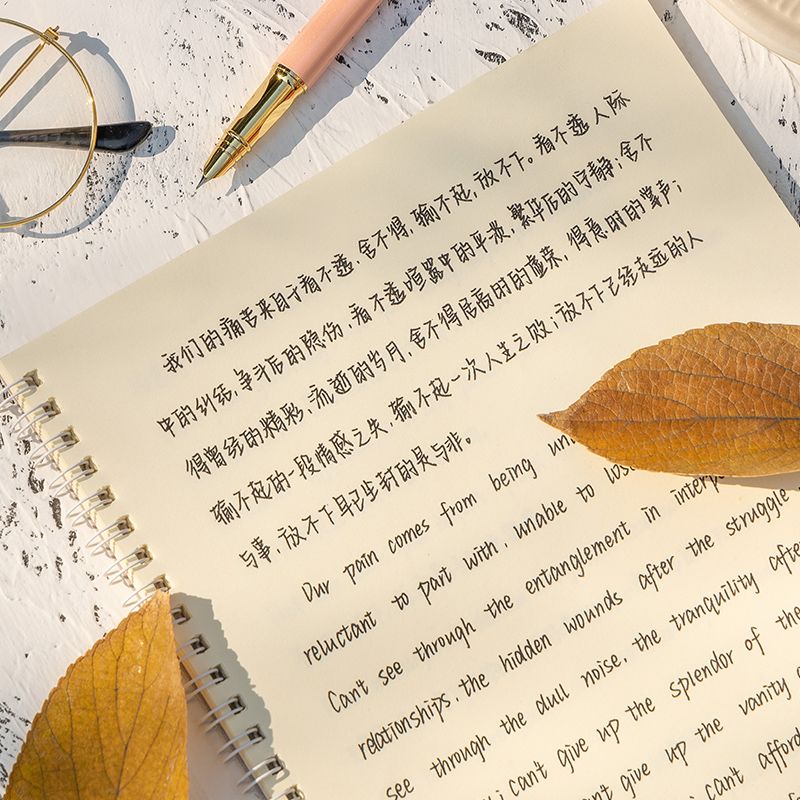 我们的痛苦来自于看不透,舍不得,输不起,放不下。看不透人际
中的纠结,争斗后的隐伤,看不透喧嚣中的平淡,繁华后的宁静;舍不
得曾经的精彩,流逝的岁月,舍不得居高时的虚荣,得意时的掌声;
输不起的一段情感之失,输不起一次人生之败;放不下已经走远的人
与事,放不下早已尘封的是与非。
Our pain comes from being
reluctant to part with, unable to
Can't see through the entanglement in
relationships, the hidden wounds after the struggle
see through the dull noise, the tranquility
; can't give up the splendor of the
can't give up the vanity
; can't afford